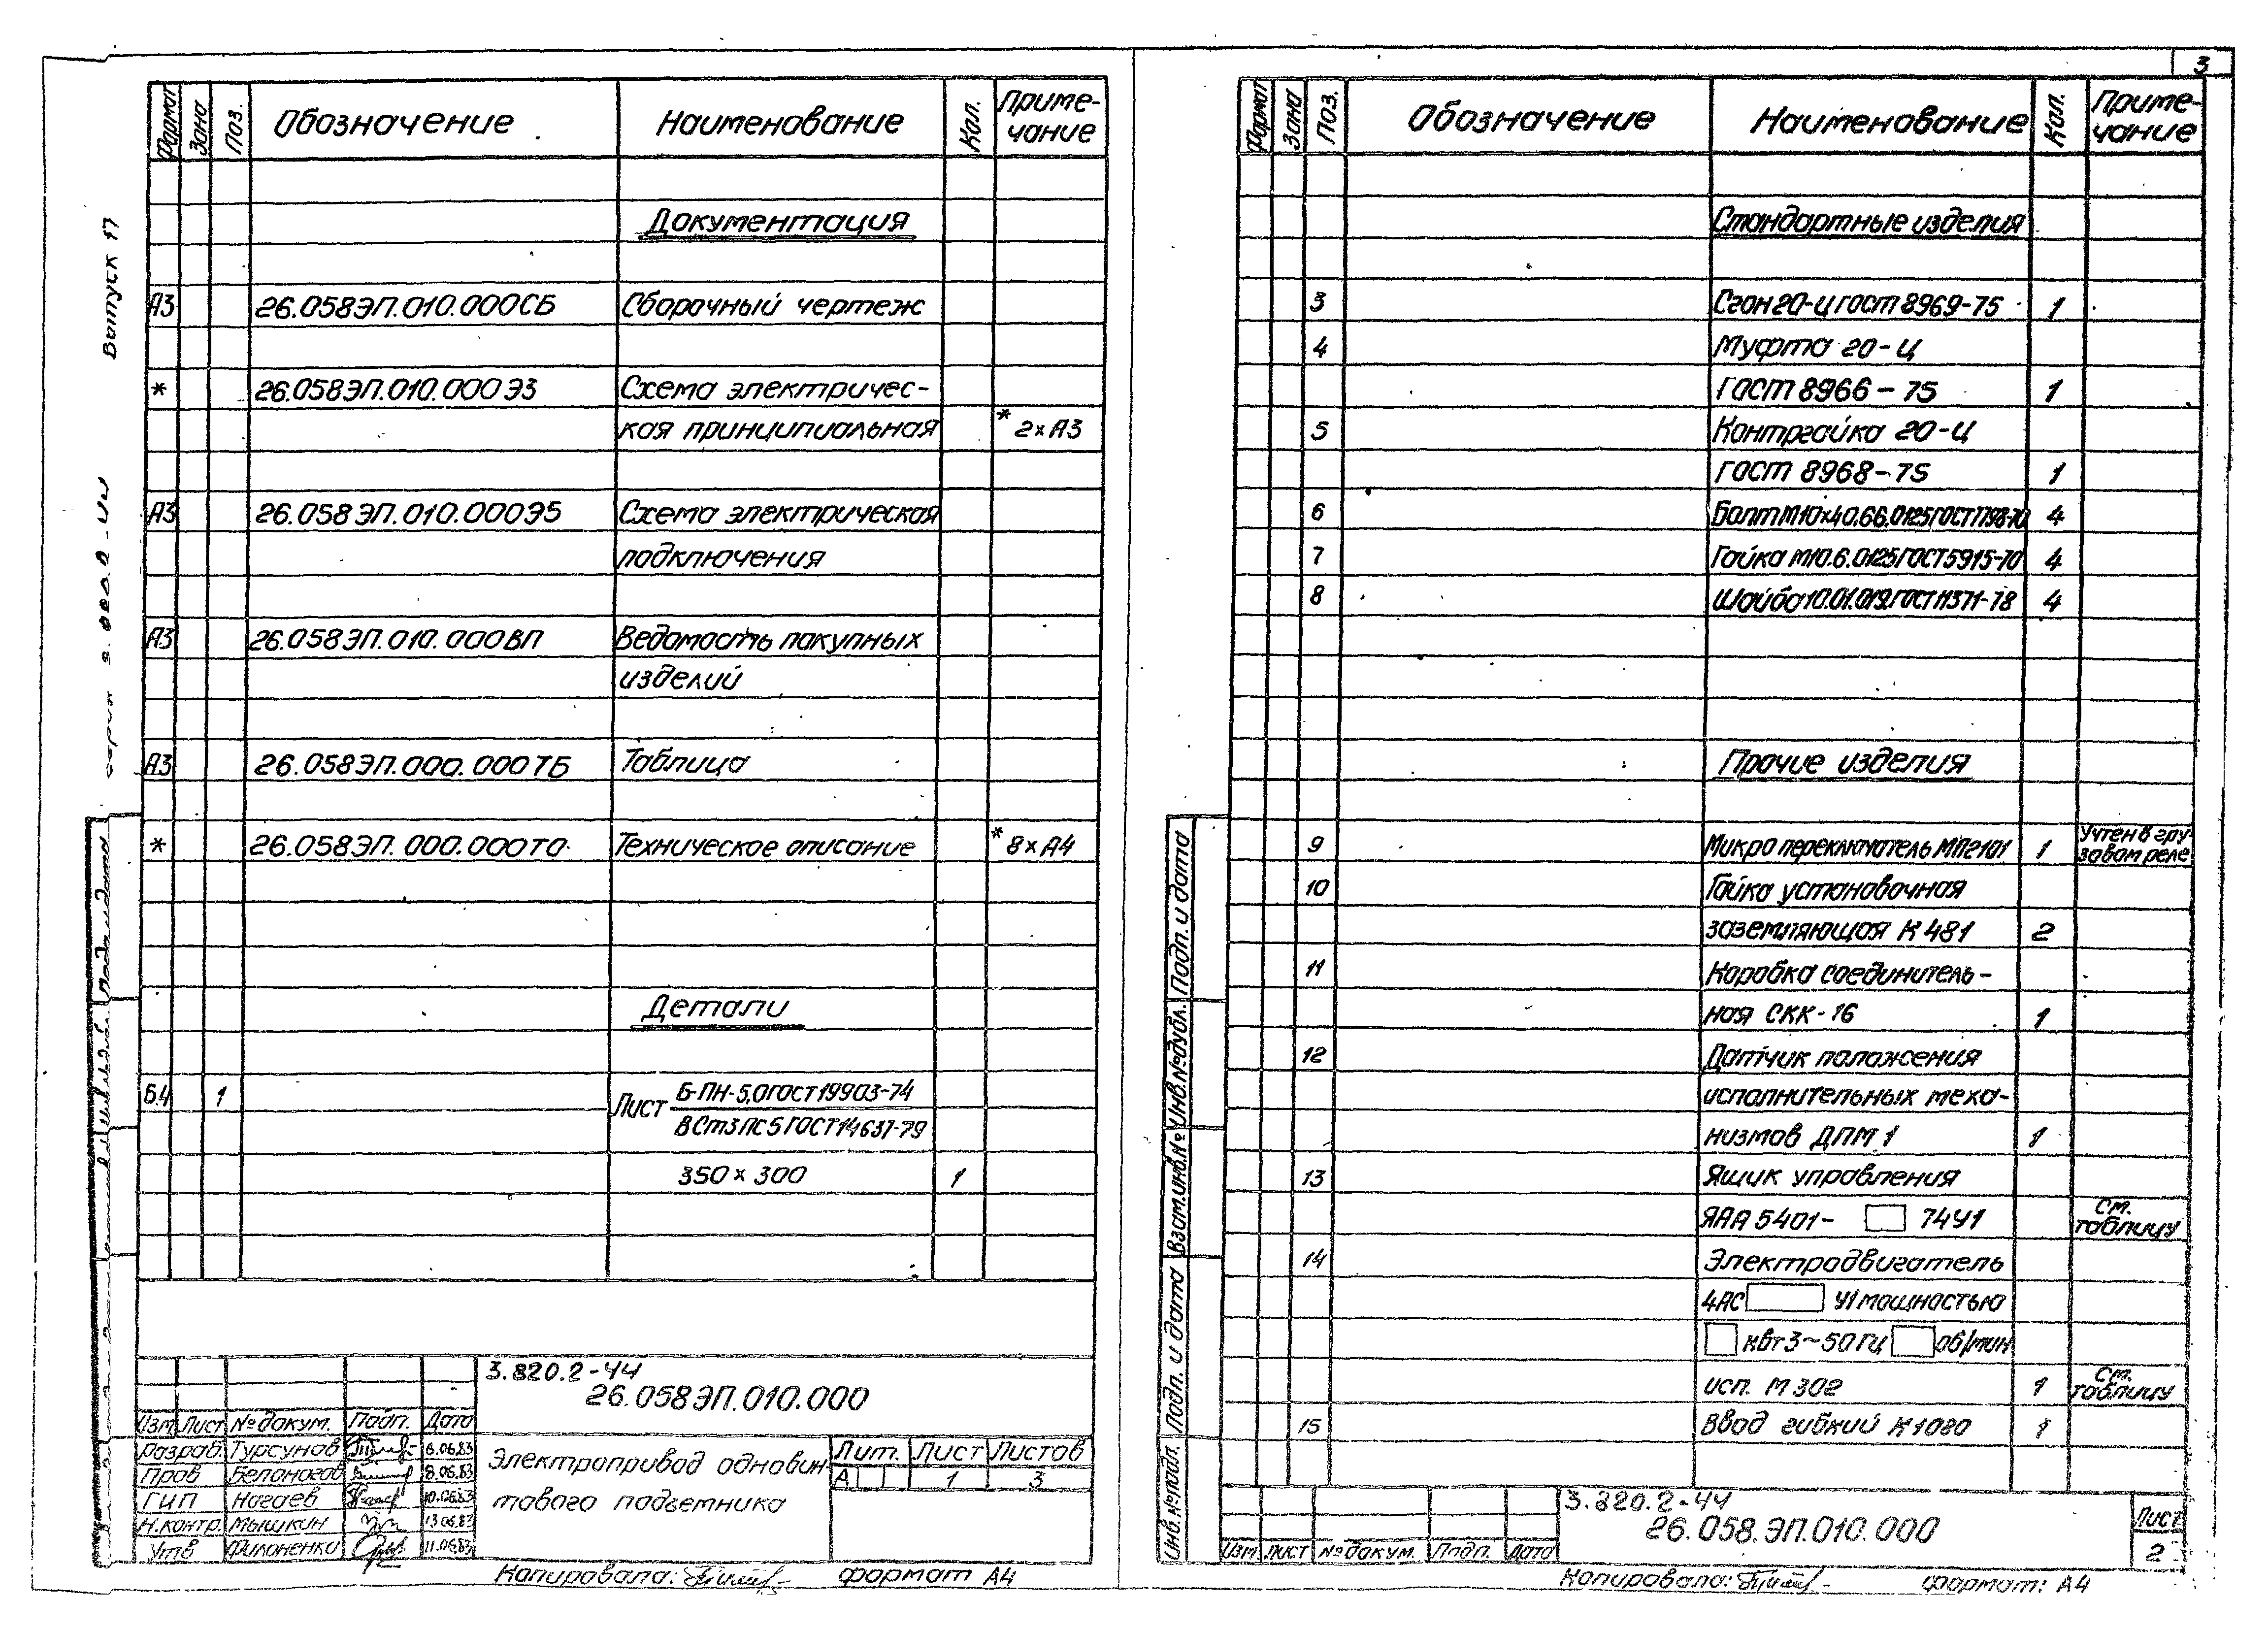 3
Выпуск 17
Формат Зона Поз. Обозначение Наименование Кол. Приме-
чание
Документация
А3 26.058ЭП.010.000СБ Сборочный чертеж
* 26.058ЭП.010.000Э3 Схема электричес-
кая принципиальная * 2×А3
А3 26.058ЭП.010.000Э5 Схема электрическая
подключения
А3 26.058ЭП.010.000ВП Ведомость покупных
изделий
А3 26.058ЭП.000.000ТБ Таблица
* 26.058ЭП.000.000ТО Техническое описание * 8×А4
Детали
Б4 1 Лист Б-ПН-5,0 ГОСТ 19903-74
ВСт3ПС5 ГОСТ 14637-79
350×300 1
3.820.2-44
26.058ЭП.010.000
Изм Лист № докум. Подп. Дата
Разраб. Турсунов 6.06.83
Пров Белоногов 8.06.83
ГИП Нагаев 10.06.83
Н.контр. Мышкин 13.06.83
Утв Филоненко 11.06.83
Электропривод одновин-
тового подъемника
Лит. Лист Листов
А 1 3
Копировала: формат А4
Формат Зона Поз. Обозначение Наименование Кол. Приме-
чание
Стандартные изделия
3 Сгон 20-Ц ГОСТ 8969-75 1
4 Муфта 20-Ц
ГОСТ 8966-75 1
5 Контргайка 20-Ц
ГОСТ 8968-75 1
6 Болт М10×40.66.0125 ГОСТ 7798-70 4
7 Гайка М10.6.0125 ГОСТ 5915-70 4
8 Шайба 10.01.019 ГОСТ 11371-78 4
Прочие изделия
9 Микропереключатель МП2101 1 Учтен в гру-
зовом реле
10 Гайка установочная
заземляющая К481 2
11 Коробка соединитель-
ная СКК-16 1
12 Датчик положения
исполнительных меха-
низмов ДПМ1 1
13 Ящик управления
ЯАА 5401- 74У1 См.
таблицу
14 Электродвигатель
4АС У1 мощностью
квт 3~50Гц об/мин
исп. М302 1 См.
таблицу
15 Ввод гибкий К1080 1
Инв.№ подл. Подп. и дата Взам.инв.№ Инв.№ дубл. Подп. и дата
3.820.2-44
26.058.ЭП.010.000
Изм Лист № докум. Подп. Дата
Лист
2
Копировала: формат: А4